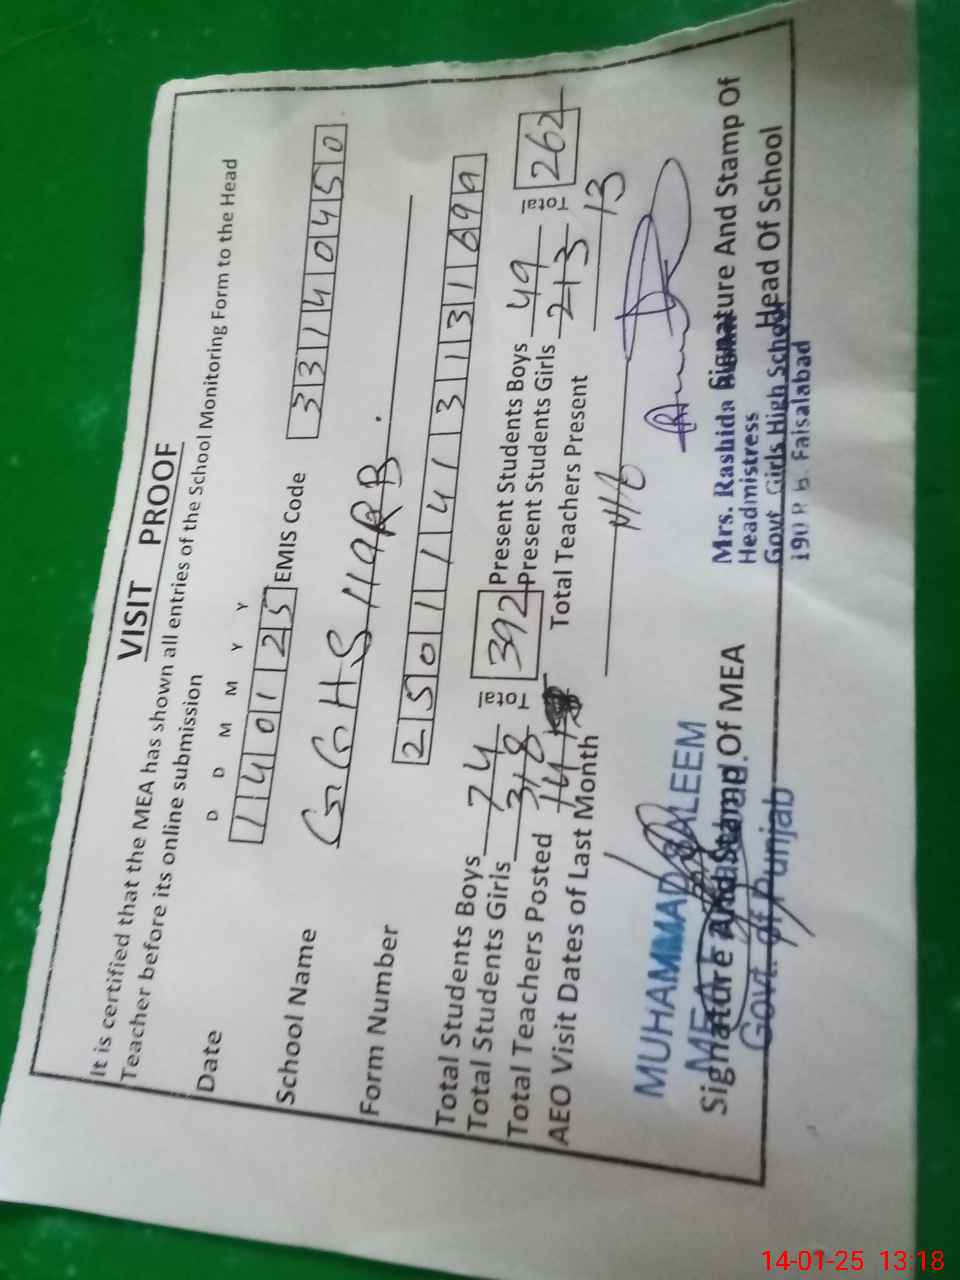 VISIT PROOF
It is certified that the MEA has shown all entries of the School Monitoring Form to the Head
Teacher before its online submission
D D M M Y Y
Date 140125 EMIS Code 33140450
School Name GGHS 119RB.
Form Number 2501141313169
Total Students Boys 74 Total 392 Present Students Boys 49 Total 262
Total Students Girls 318 Present Students Girls 213
Total Teachers Posted 14 Total Teachers Present 13
AEO Visit Dates of Last Month Nil
MUHAMMAD SALEEM
MEA
Govt. of Punjab
Signature And Stamp Of MEA
Mrs. Rashida
Headmistress
Govt. Girls High School
190 R B. Faisalabad
Signature And Stamp Of
Head Of School
14-01-25 13:18